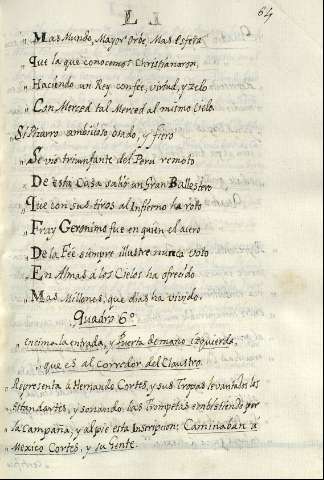 LJ
64
„ Mas Mundo, Mayor Orbe, Mas Esfera
„ Que la que conocemos Christianaron,
„ Haciendo un Rey con feè, virtud, y zelo
„ Con Merced tal Merced al mismo Cielo
„ Si Pizarro ambicioso, osado, y fiero
„ Se vio triunfante del Perù remoto
„ De esta Casa saliò un Gran Ballestero
„ Que con sus tiros al Infierno ha roto
„ Fray Geronimo fue en quien el acero
„ De la Feè siempre ilustre nunca voto
„ En Almas à los Cielos ha ofrecido
„ Mas Millones, que dias ha vivido.
Quadro 6º
encima la entrada, y Puerta de mano izquierda,
que es al Corredor del Claustro.
„ Representa à Hernando Cortès, y sus Tropas levantados los
„ Estandartes, y sonando las Trompetas embistiendo por
„ la Campaña, y al pie esta Inscripcion: Caminaban à
„ Mexico Cortès, y su Gente.